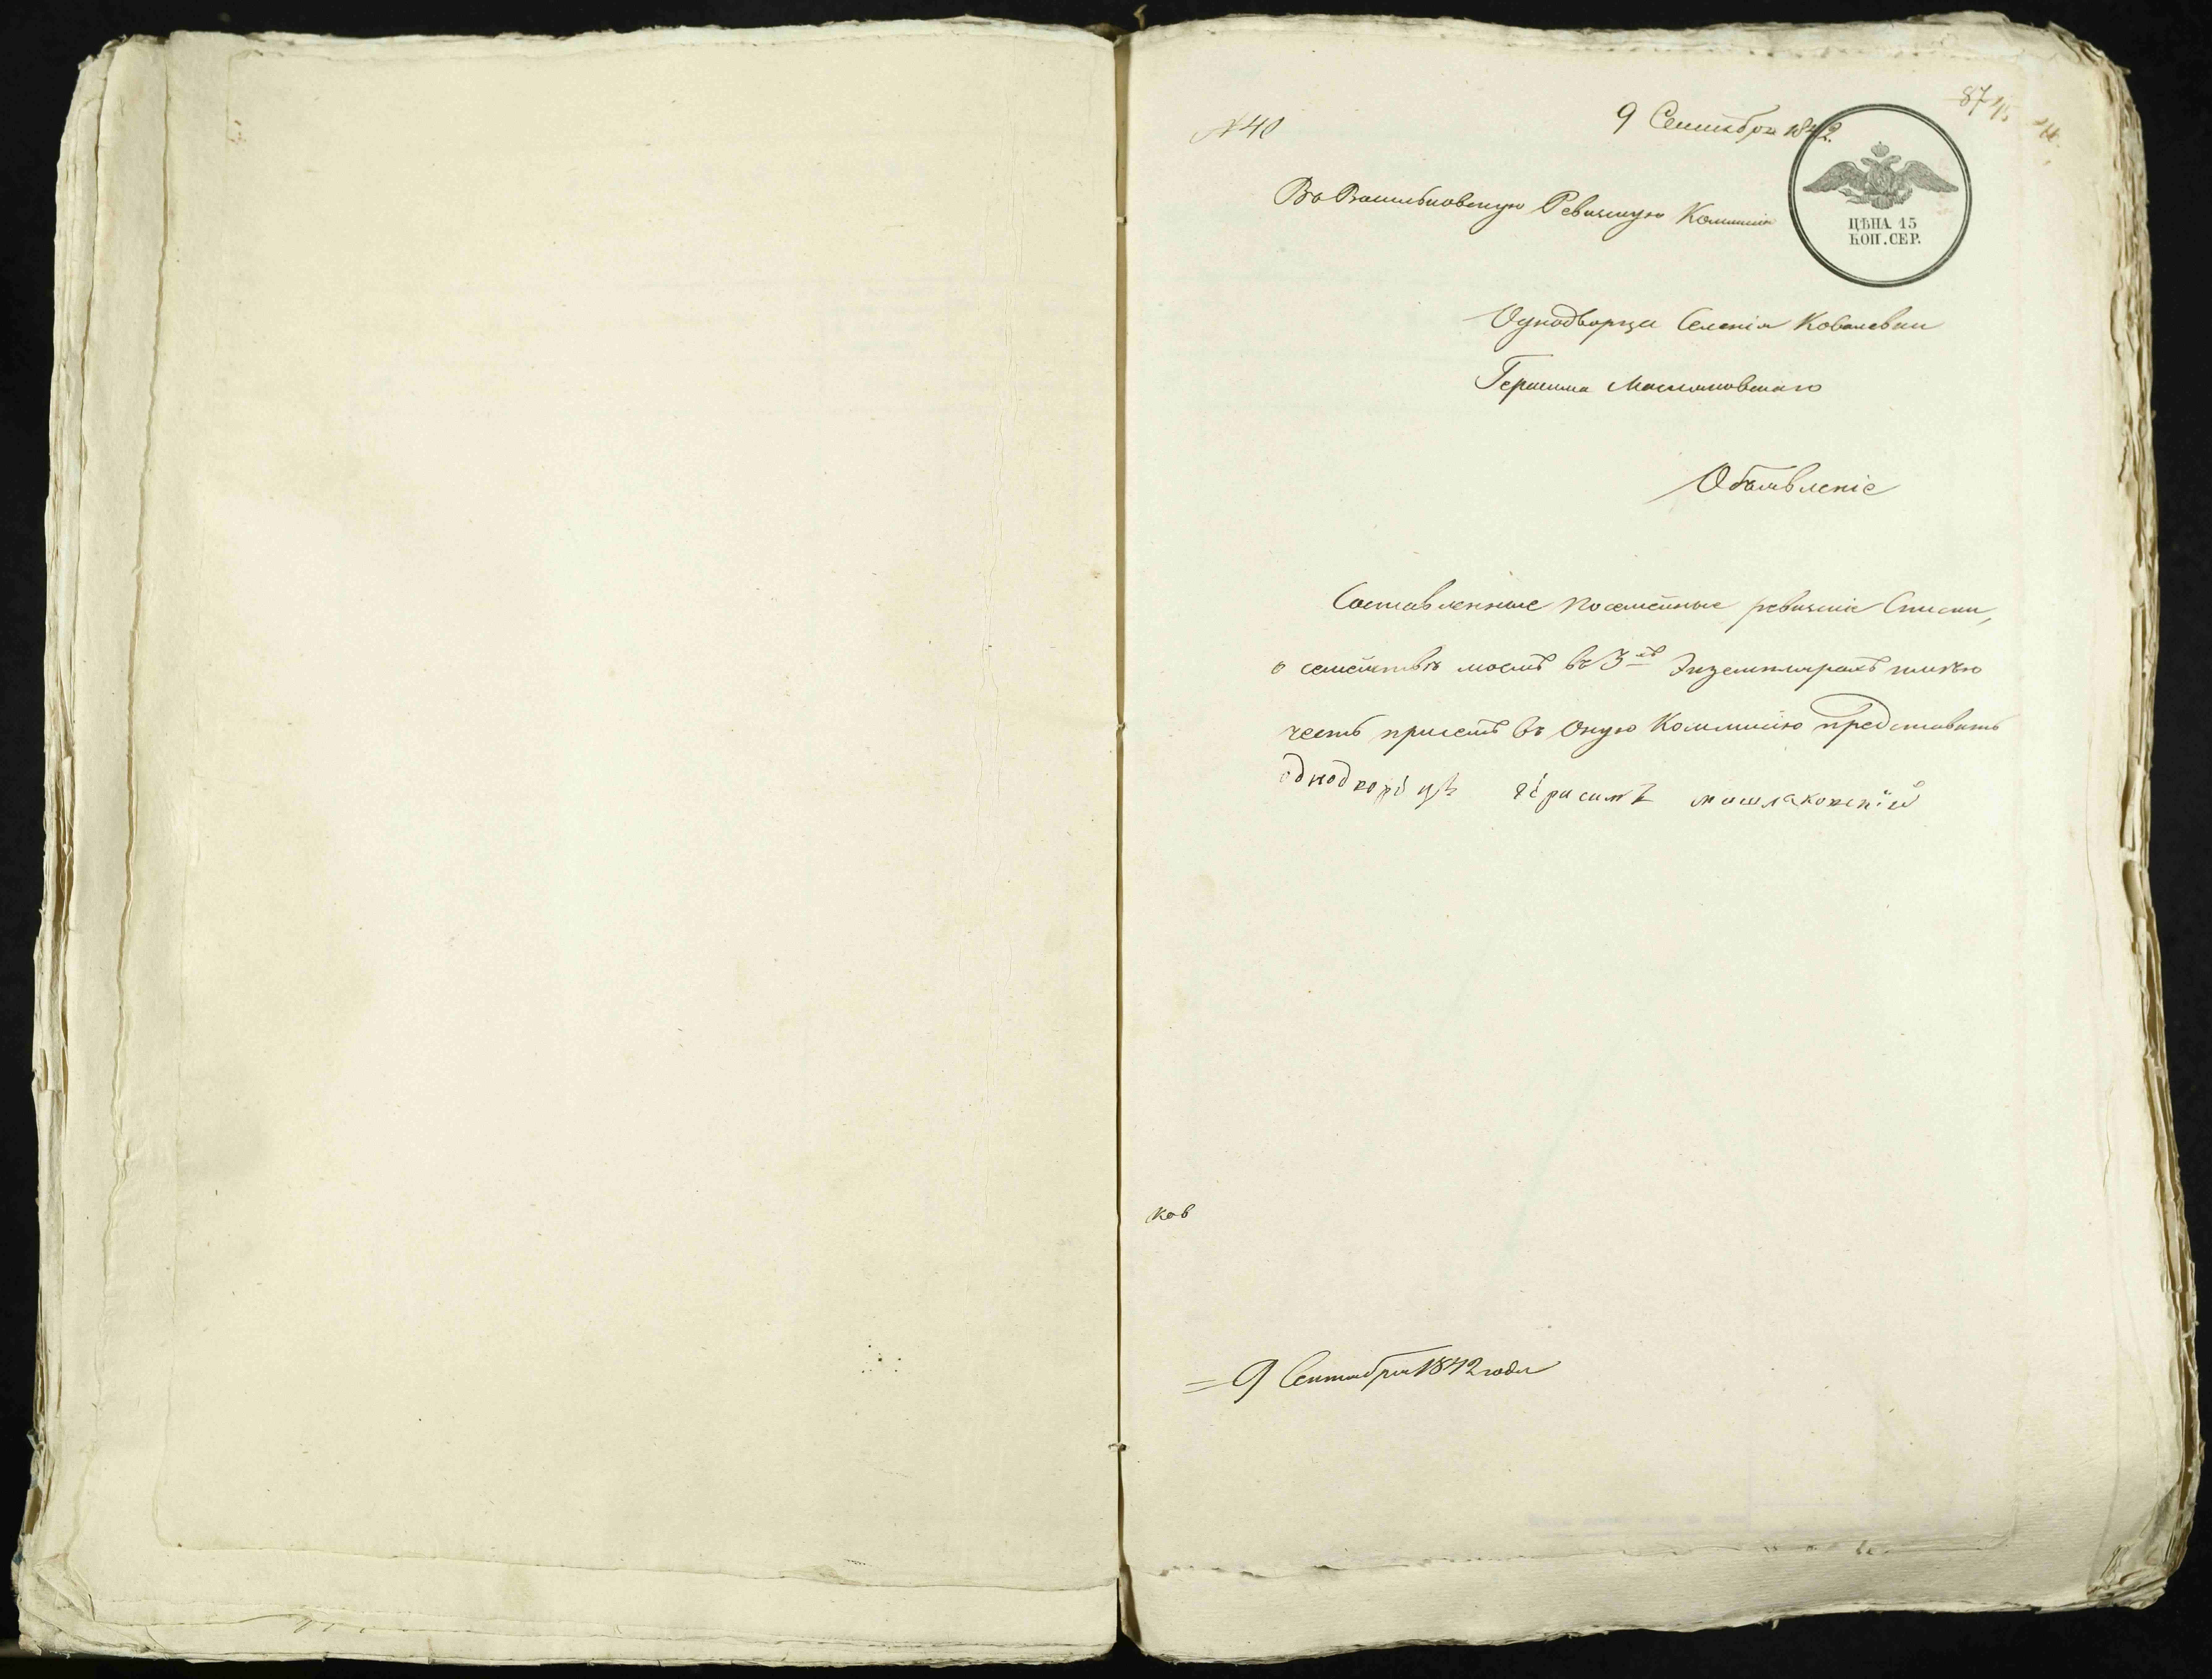 87 45
№ 40
9 Сентября 1842
Въ Васильковскую Ревизскую Коммисію
ЦѢНА 15
КОП. СЕР.
Однодворца Селенія Ковалевки
Герасима Маслаковскаго
Объявленіе
Составленные посемейные ревизскіе Списки,
о семействѣ моемъ въ 3хъ Экземплярахъ имѣю
честь присемъ въ Оную Коммисію представить
однодворецъ герасимъ маслаковскій
ков
9 Сентября 1842 года